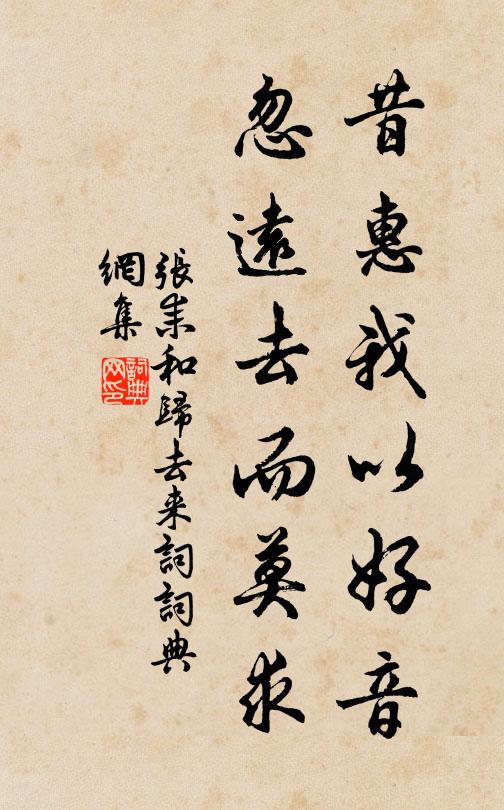 昔惠我以好音
忽遠去而莫求
張耒和歸去来詞詞典
網集
詞典
网印